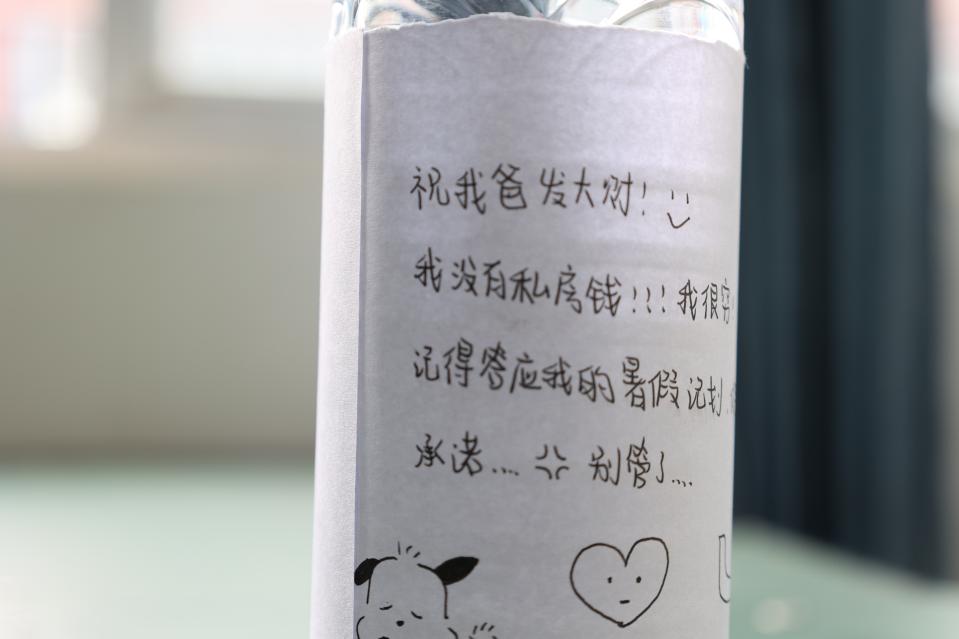 祝我爸发大财!
我没有私房钱!!!我很穷
记得答应我的暑假记划
承诺.... 别管了....
U